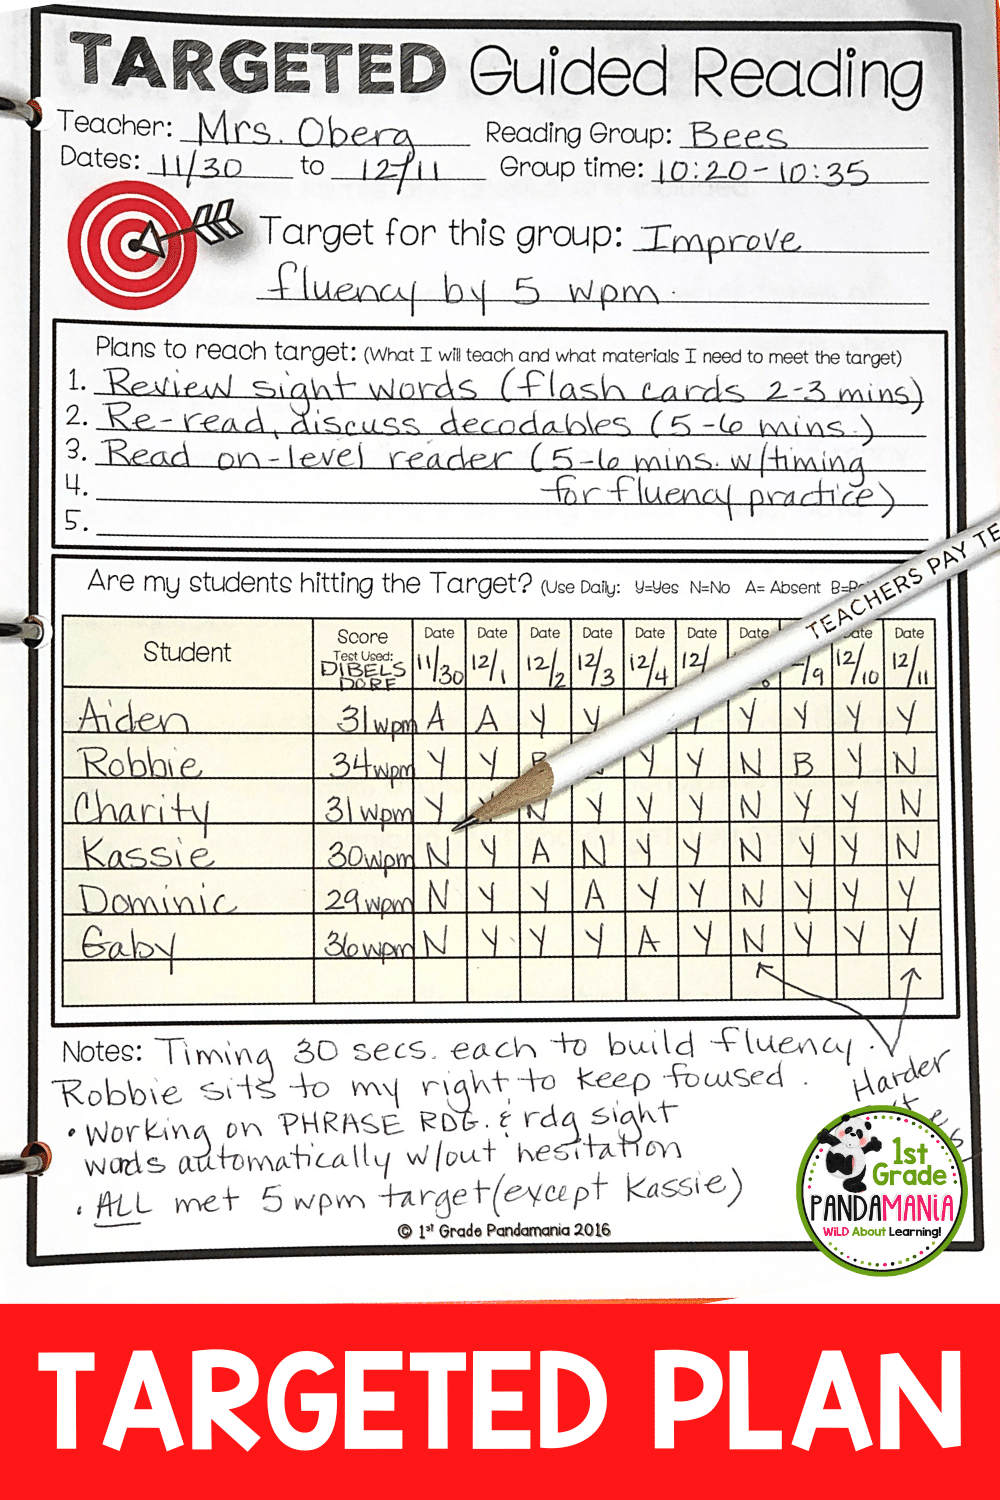 TARGETED Guided Reading
Teacher: Mrs. Oberg Reading Group: Bees
Dates: 11/30 to 12/11 Group time: 10:20-10:35
Target for this group: Improve
fluency by 5 wpm.
Plans to reach target: (What I will teach and what materials I need to meet the target)
1. Review sight words (flash cards 2-3 mins)
2. Re-read, discuss decodables (5-6 mins.)
3. Read on-level reader (5-6 mins. w/timing
4. for fluency practice)
5.
Are my students hitting the Target? (Use Daily: Y=Yes N=No A= Absent
TEACHERS PAY
Student Score Date Date Date Date Date Date Date Date Date
Test Used: DIBELS DORF 11/30 12/1 12/2 12/3 12/4 12/ 12/10 12/11
Aiden 31wpm A A Y Y Y Y Y Y
Robbie 34wpm Y Y Y Y N B Y N
Charity 31wpm Y N Y Y Y N Y Y N
Kassie 30wpm N Y A N Y Y N Y Y N
Dominic 29wpm N Y Y A Y Y N Y Y Y
Gaby 36wpm N Y Y Y A Y N Y Y Y
Notes: Timing 30 secs. each to build fluency.
Robbie sits to my right to keep focused.
• Working on PHRASE RDG. & rdg sight
words automatically w/out hesitation
• ALL met 5 wpm target (except Kassie)
Harder
© 1st Grade Pandamania 2016
1st
Grade
PANDAMANIA
WiLD About Learning!
TARGETED PLAN